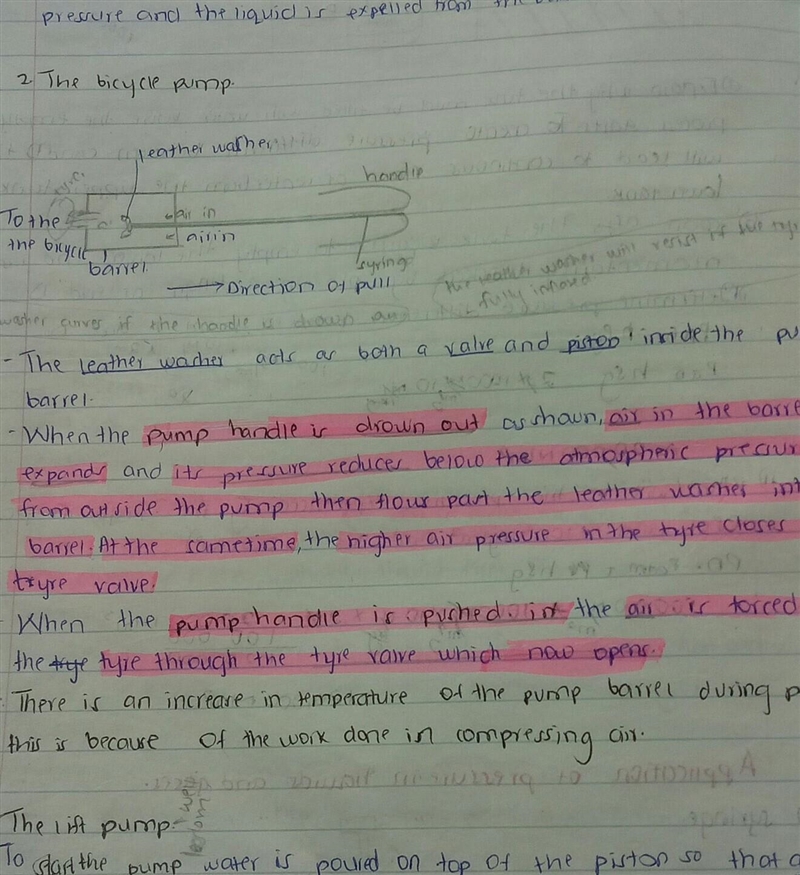 pressure and the liquid is expelled from the
2. The bicycle pump.
leather washer
handle
To the
air in
the bicycle
air in
barrel
syringe
→ Direction of pull
the leather washer will resist if the tyre
fully inflated
washer curves if the handle is drawn
- The leather washer acts as both a valve and piston inside the pu
barrel.
- When the pump handle is drawn out as shown, air in the barre
expands and its pressure reduces below the atmospheric pressur
from outside the pump then flows past the leather washer int
barrel. At the sametime, the higher air pressure in the tyre closes
tyre valve.
- When the pump handle is pushed in the air is forced
the tyre tyre through the tyre valve which now opens.
- There is an increase in temperature of the pump barrel during p
this is because of the work done in compressing air.
The lift pump.
To start the pump water is poured on top of the piston so that a